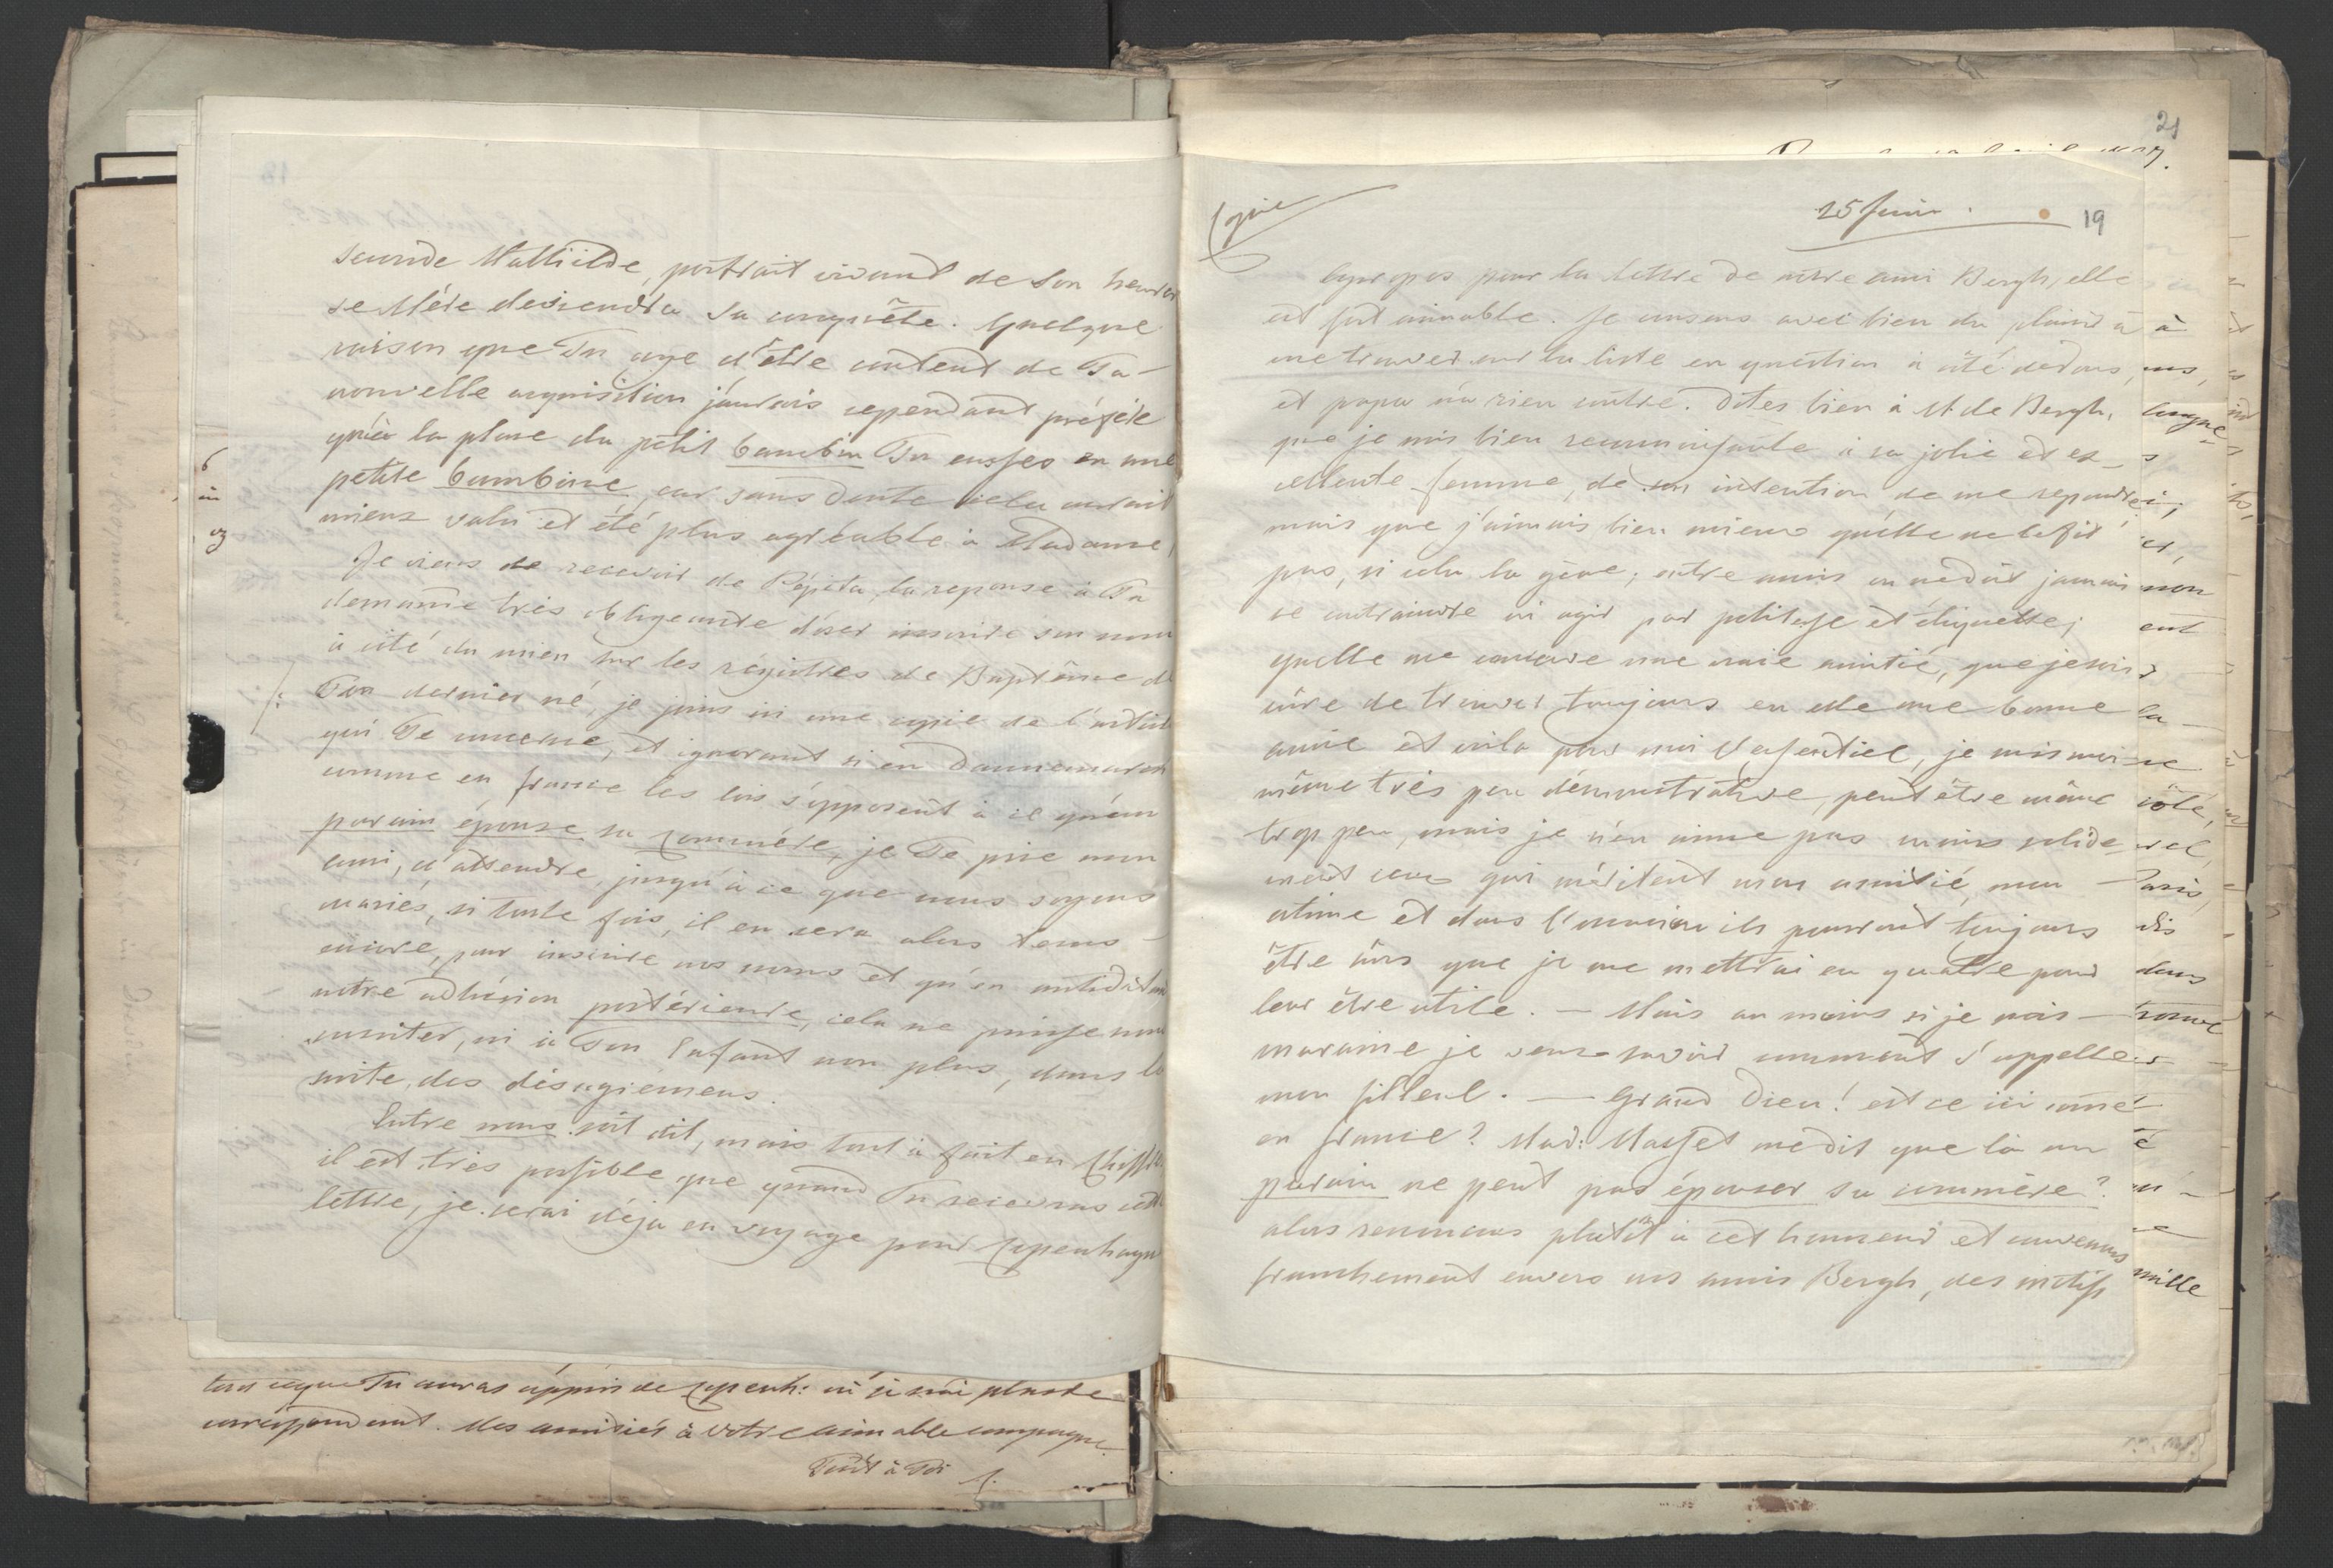 seconde Mathilde, portrait vivant de son heureu
se Mére deviendra sa conquête. Quelque
raison que Tu aye d'être content de Ta
nouvelle acquisition j'aurais cependant préféré
qu'à la place du petit bambin Tu eusses eu une
petite bambine car sans doute cela aurait
mieux valu et été plus agréable à Madame,
Je viens de recevoir de Pépita, la reponse à Ta
demande très obligeante d'oser inscrire son nom
à côté du mien sur les régistres de Baptême de
Ton dernier né, je joins ici une copie de l'article
qui Te concerne, et ignorant si en Dannemarck
comme en france les lois s'opposent à ce qu'un
parain épouse sa commére, je Te prie mon
ami, d'attendre, jusqu'à ce que nous soyons
mariés, si toute fois, il en sera alors tems
encore, pour inscrire nos noms et qu'en antidatant
notre adhésion postérieure, cela ne puisse nous
susciter, ni à Ton Enfant non plus, dans la
suite, des désagrémens.
Entre nous soit dit, mais tout à fait en
il est très possible que quand Tu recevras cette
lettre, je serai déja en voyage pour Copenhague
tems ceque Tu auras appris de Copenh: où je n'ai plus de
correspondant. Mes amitiés à votre aimable compagne
Tout à Toi
21
Copie
25 Juin.
19
Apropos pour la lettre de nôtre ami Bergh, elle
est fort aimable. Je consens avec bien du plaisir à
me trouver sur la liste en question à côté de vous,
et papa n'a rien contre. Dites bien à M. de Bergh,
que je suis bien reconnaissante à sa jolie et ex-
cellente femme, de son intention de me repondre,
mais que j'aimais bien mieux qu'elle ne le fit
pas, si cela la gêne; entre amis on ne dût jamais
se contraindre ni agir par politesse et étiquette;
qu'elle me conserve une vraie amitié, que je sois
sûre de trouver toujours en elle une bonne
amie et voila pour moi l'essentiel, je suis moi
même très peu démonstrative, peut être même
trop peu, mais je n'en aime pas moins solide
ment ceux qui méritent mon amitié, mon
estime et dans l'occasion ils pourront toujours
être sûrs que je me mettrai en quatre pour
leur être utile. — Mais au moins si je suis
maraine je veux savoir comment s'appelle
mon filleul. — Grand Dieu! est ce ici comme
en france? Mad: Masset me dit que là un
parain ne peut pas épouser sa commère?
alors renoncons plutôt à cet honneur et convenons
franchement envers nos amis Bergh, des motifs
à
longue
non
ent
la
côté,
Paris,
dis
dans
trouve
mille